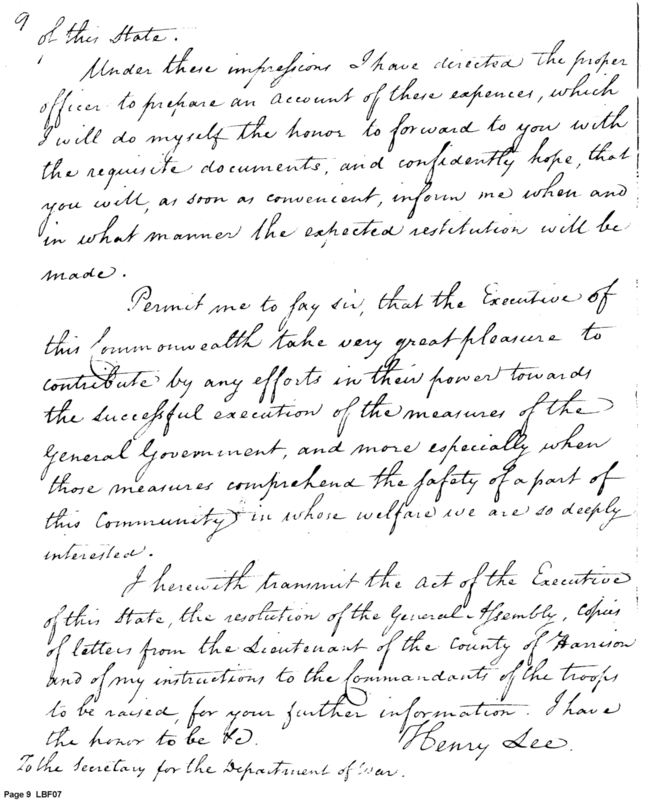 9
of this State.
Under these impressions I have directed the proper
officer to prepare an account of these expences, which
I will do myself the honor to forward to you with
the requisite documents, and confidently hope, that
you will, as soon as convenient, inform me when and
in what manner the expected restitution will be
made.
Permit me to say sir, that the Executive of
this Commonwealth take very great pleasure to
contribute by any efforts in their power towards
the successful execution of the measures of the
General Government, and more especially when
those measures comprehend the safety of a part of
this Community in whose welfare we are so deeply
interested.
I herewith transmit the act of the Executive
of this State, the resolution of the General Assembly, copies
of letters from the Lieutenant of the County of Harrison
and of my instructions to the Commandants of the troops
to be raised, for your further information. I have
the honor to be &c. Henry Lee.
To the Secretary for the Department of War.
Page 9 LBF07